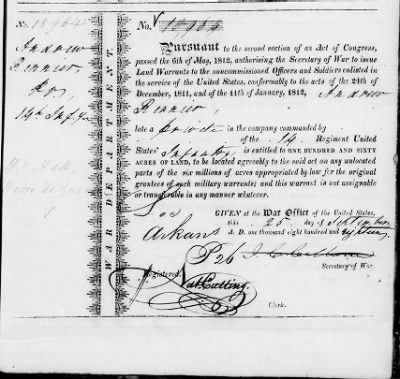 No. 18964
Andrew
14th Inf
WAR DEPARTMENT.
No. 18964
Pursuant to the second section of an Act of Congress,
passed the 6th of May, 1812, authorising the Secretary of War to issue
Land Warrants to the noncommissioned Officers and Soldiers enlisted in
the service of the United States, conformably to the acts of the 24th of
December, 1811, and of the 11th of January, 1812, Andrew
late a in the company commanded by
of the 14 Regiment United
States' Infantry, is entitled to ONE HUNDRED AND SIXTY
ACRES OF LAND, to be located agreeably to the said act on any unlocated
parts of the six millions of acres appropriated by law for the original
grantees of such military warrants; and this warrant is not assignable
or transferable in any manner whatever.
GIVEN at the War Office of the United States,
this 25 day of September
A. D. one thousand eight hundred and
Arkans
J. C. Calhoun
Secretary of War.
Registered.
Nat Cutting
Clerk.